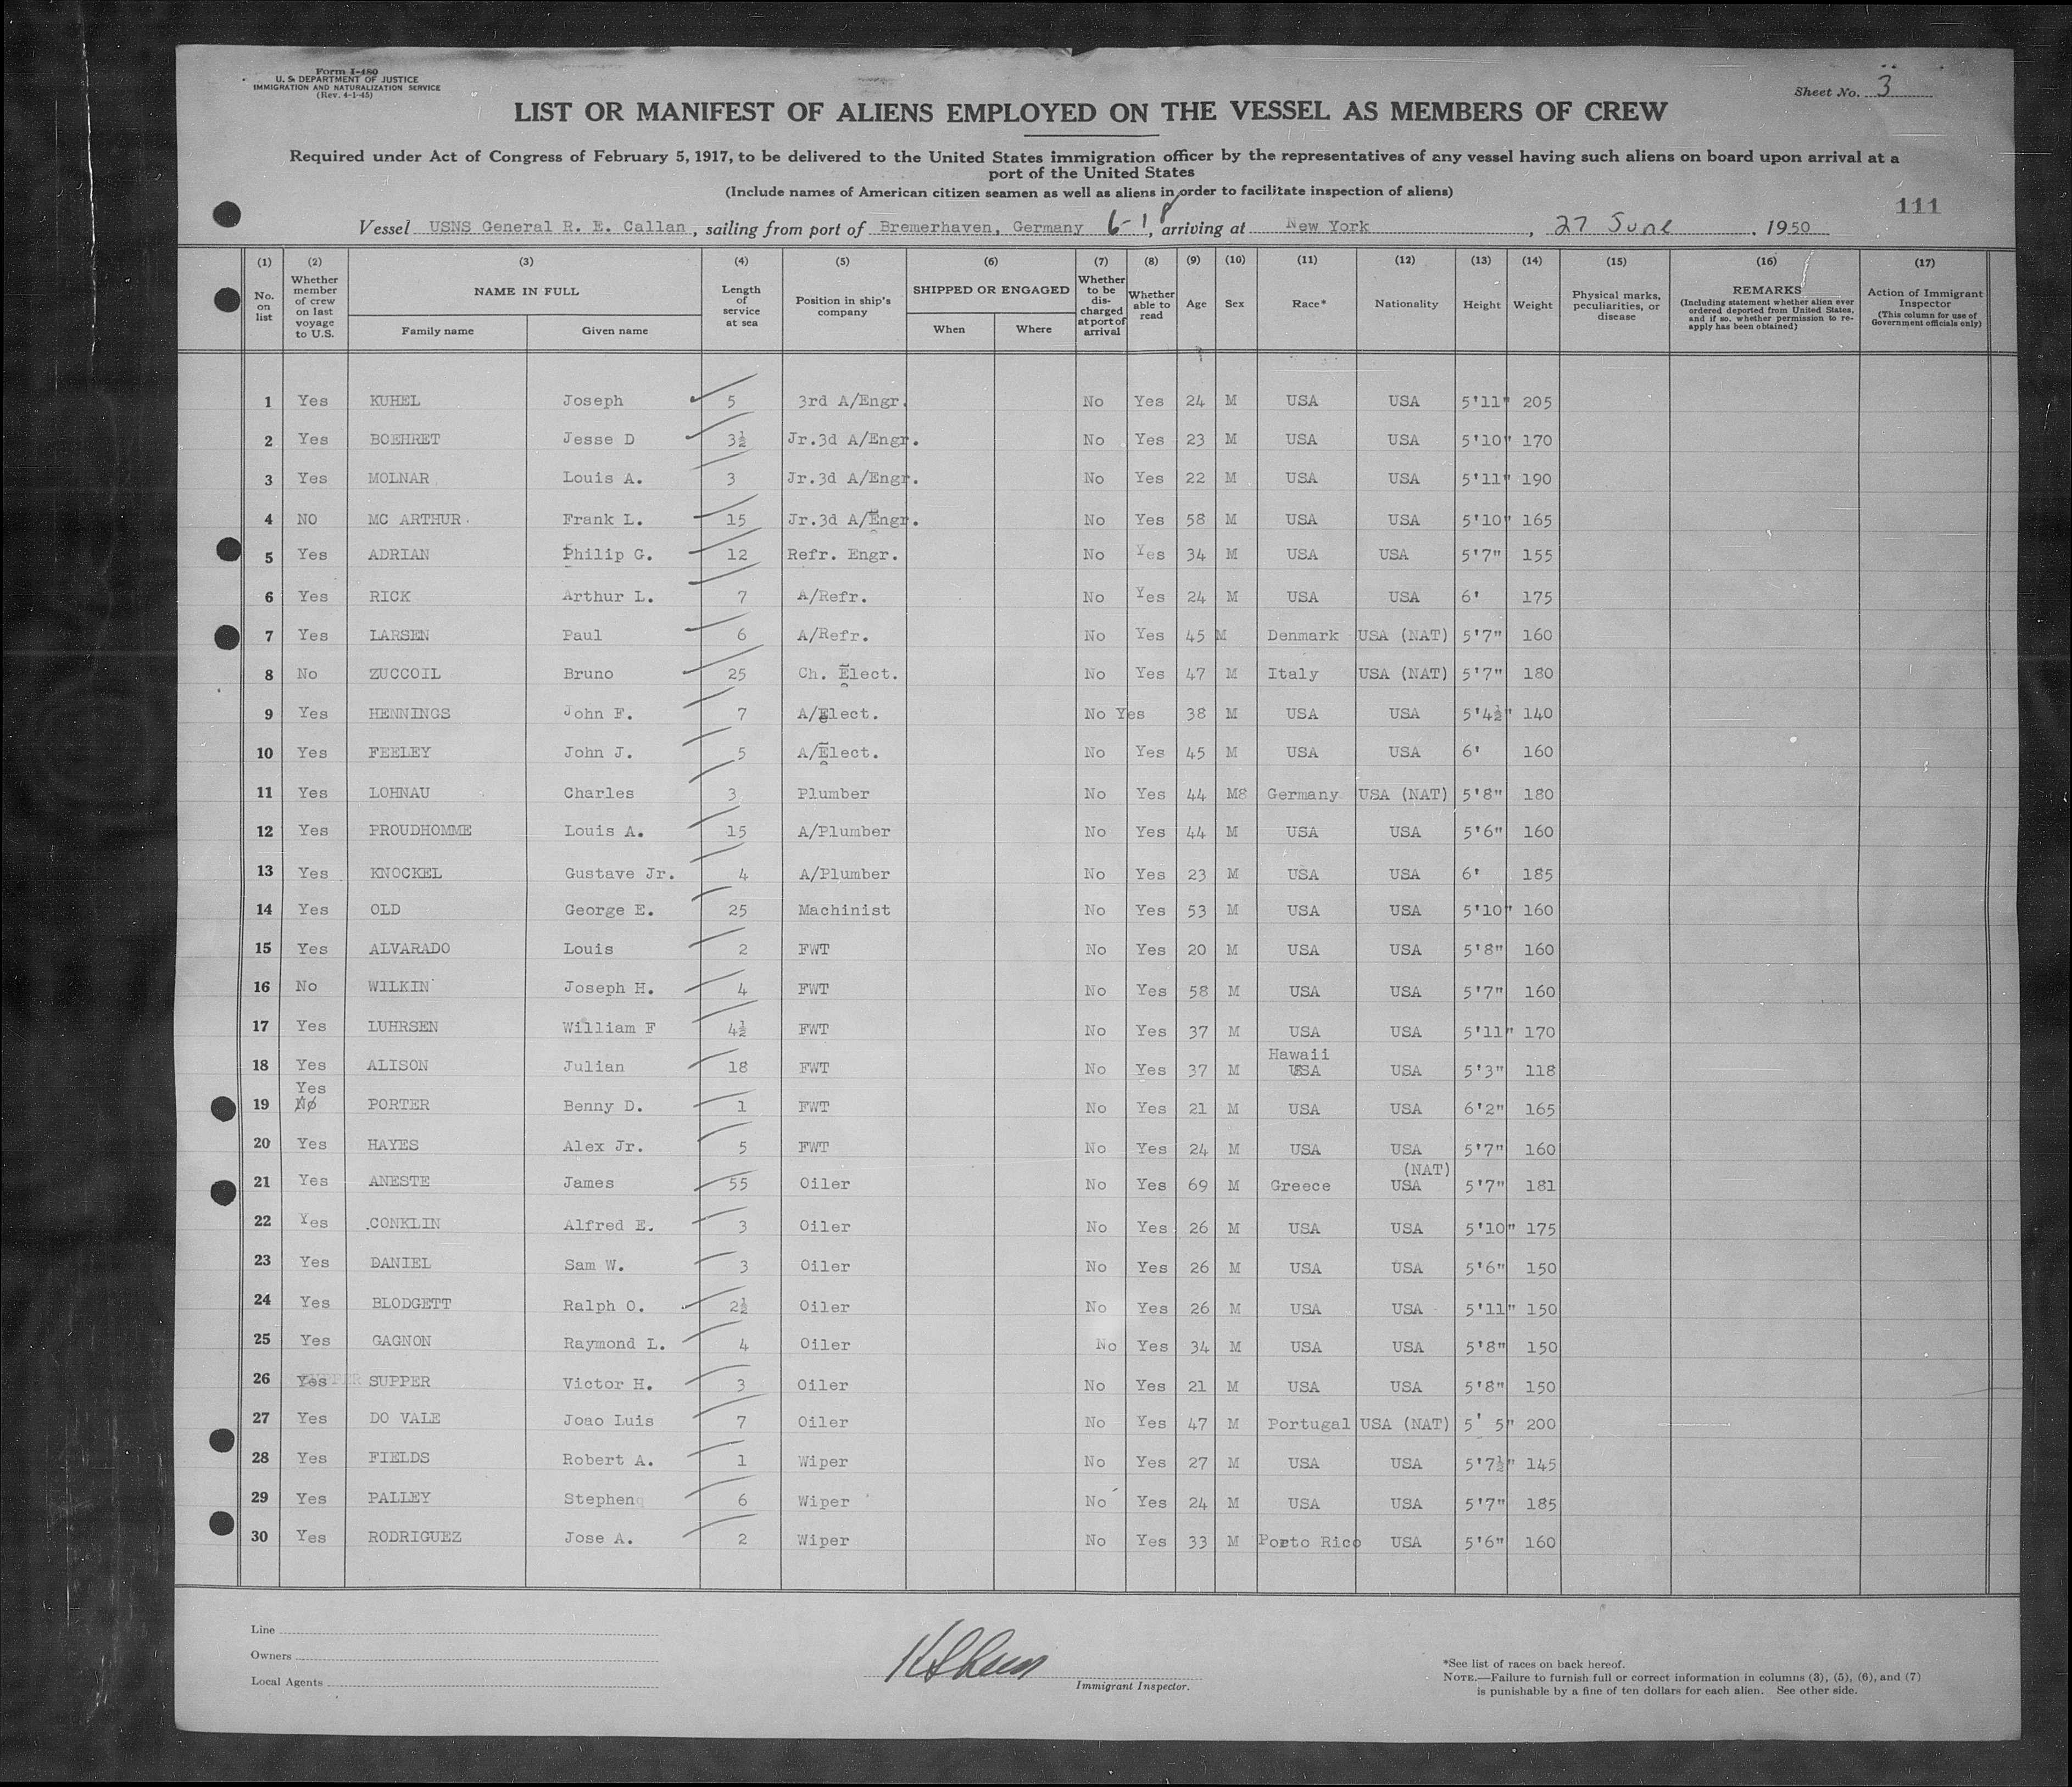 Form I-480
U. S. DEPARTMENT OF JUSTICE
IMMIGRATION AND NATURALIZATION SERVICE
(Rev. 4-1-45)
Sheet No. 3
LIST OR MANIFEST OF ALIENS EMPLOYED ON THE VESSEL AS MEMBERS OF CREW
Required under Act of Congress of February 5, 1917, to be delivered to the United States immigration officer by the representatives of any vessel having such aliens on board upon arrival at a
port of the United States
(Include names of American citizen seamen as well as aliens in order to facilitate inspection of aliens)
111
Vessel USNS General R. E. Callan, sailing from port of Bremerhaven, Germany 6-18, arriving at New York, 27 June, 1950
(1) (2) (3) (4) (5) (6) (7) (8) (9) (10) (11) (12) (13) (14) (15) (16) (17)
No. on list
Whether member of crew on last voyage to U.S.
NAME IN FULL
Family name Given name
Length of service at sea
Position in ship's company
SHIPPED OR ENGAGED
When Where
Whether to be discharged at port of arrival
Whether able to read
Age Sex Race* Nationality Height Weight
Physical marks, peculiarities, or disease
REMARKS
(Including statement whether alien ever ordered deported from United States, and if so, whether permission to reapply has been obtained)
Action of Immigrant Inspector
(This column for use of Government officials only)
1 Yes KUHEL Joseph 5 3rd A/Engr. No Yes 24 M USA USA 5'11" 205
2 Yes BOEHRET Jesse D 3½ Jr.3d A/Engr. No Yes 23 M USA USA 5'10" 170
3 Yes MOLNAR Louis A. 3 Jr.3d A/Engr. No Yes 22 M USA USA 5'11" 190
4 NO MC ARTHUR. Frank L. 15 Jr.3d A/Engr. No Yes 58 M USA USA 5'10" 165
5 Yes ADRIAN Philip G. 12 Refr. Engr. No Yes 34 M USA USA 5'7" 155
6 Yes RICK Arthur L. 7 A/Refr. No Yes 24 M USA USA 6' 175
7 Yes LARSEN Paul 6 A/Refr. No Yes 45 M Denmark USA (NAT) 5'7" 160
8 No ZUCCOIL Bruno 25 Ch. Elect. No Yes 47 M Italy USA (NAT) 5'7" 180
9 Yes HENNINGS John F. 7 A/Elect. No Yes 38 M USA USA 5'4½" 140
10 Yes FEELEY John J. 5 A/Elect. No Yes 45 M USA USA 6' 160
11 Yes LOHNAU Charles 3 Plumber No Yes 44 M8 Germany USA (NAT) 5'8" 180
12 Yes PROUDHOMME Louis A. 15 A/Plumber No Yes 44 M USA USA 5'6" 160
13 Yes KNOCKEL Gustave Jr. 4 A/Plumber No Yes 23 M USA USA 6' 185
14 Yes OLD George E. 25 Machinist No Yes 53 M USA USA 5'10" 160
15 Yes ALVARADO Louis 2 FWT No Yes 20 M USA USA 5'8" 160
16 No WILKIN Joseph H. 4 FWT No Yes 58 M USA USA 5'7" 160
17 Yes LUHRSEN William F 4½ FWT No Yes 37 M USA USA 5'11" 170
18 Yes ALISON Julian 18 FWT No Yes 37 M Hawaii USA USA 5'3" 118
19 Yes No PORTER Benny D. 1 FWT No Yes 21 M USA USA 6'2" 165
20 Yes HAYES Alex Jr. 5 FWT No Yes 24 M USA USA 5'7" 160
21 Yes ANESTE James 55 Oiler No Yes 69 M Greece (NAT) USA 5'7" 181
22 Yes CONKLIN Alfred E. 3 Oiler No Yes 26 M USA USA 5'10" 175
23 Yes DANIEL Sam W. 3 Oiler No Yes 26 M USA USA 5'6" 150
24 Yes BLODGETT Ralph O. 2½ Oiler No Yes 26 M USA USA 5'11" 150
25 Yes GAGNON Raymond L. 4 Oiler No Yes 34 M USA USA 5'8" 150
26 Yes SUPPER Victor H. 3 Oiler No Yes 21 M USA USA 5'8" 150
27 Yes DO VALE Joao Luis 7 Oiler No Yes 47 M Portugal USA (NAT) 5' 5" 200
28 Yes FIELDS Robert A. 1 Wiper No Yes 27 M USA USA 5'7½" 145
29 Yes PALLEY Stephen 6 Wiper No Yes 24 M USA USA 5'7" 185
30 Yes RODRIGUEZ Jose A. 2 Wiper No Yes 33 M Porto Rico USA 5'6" 160
Line
Owners
Local Agents
Immigrant Inspector.
*See list of races on back hereof.
NOTE.—Failure to furnish full or correct information in columns (3), (5), (6), and (7)
is punishable by a fine of ten dollars for each alien. See other side.